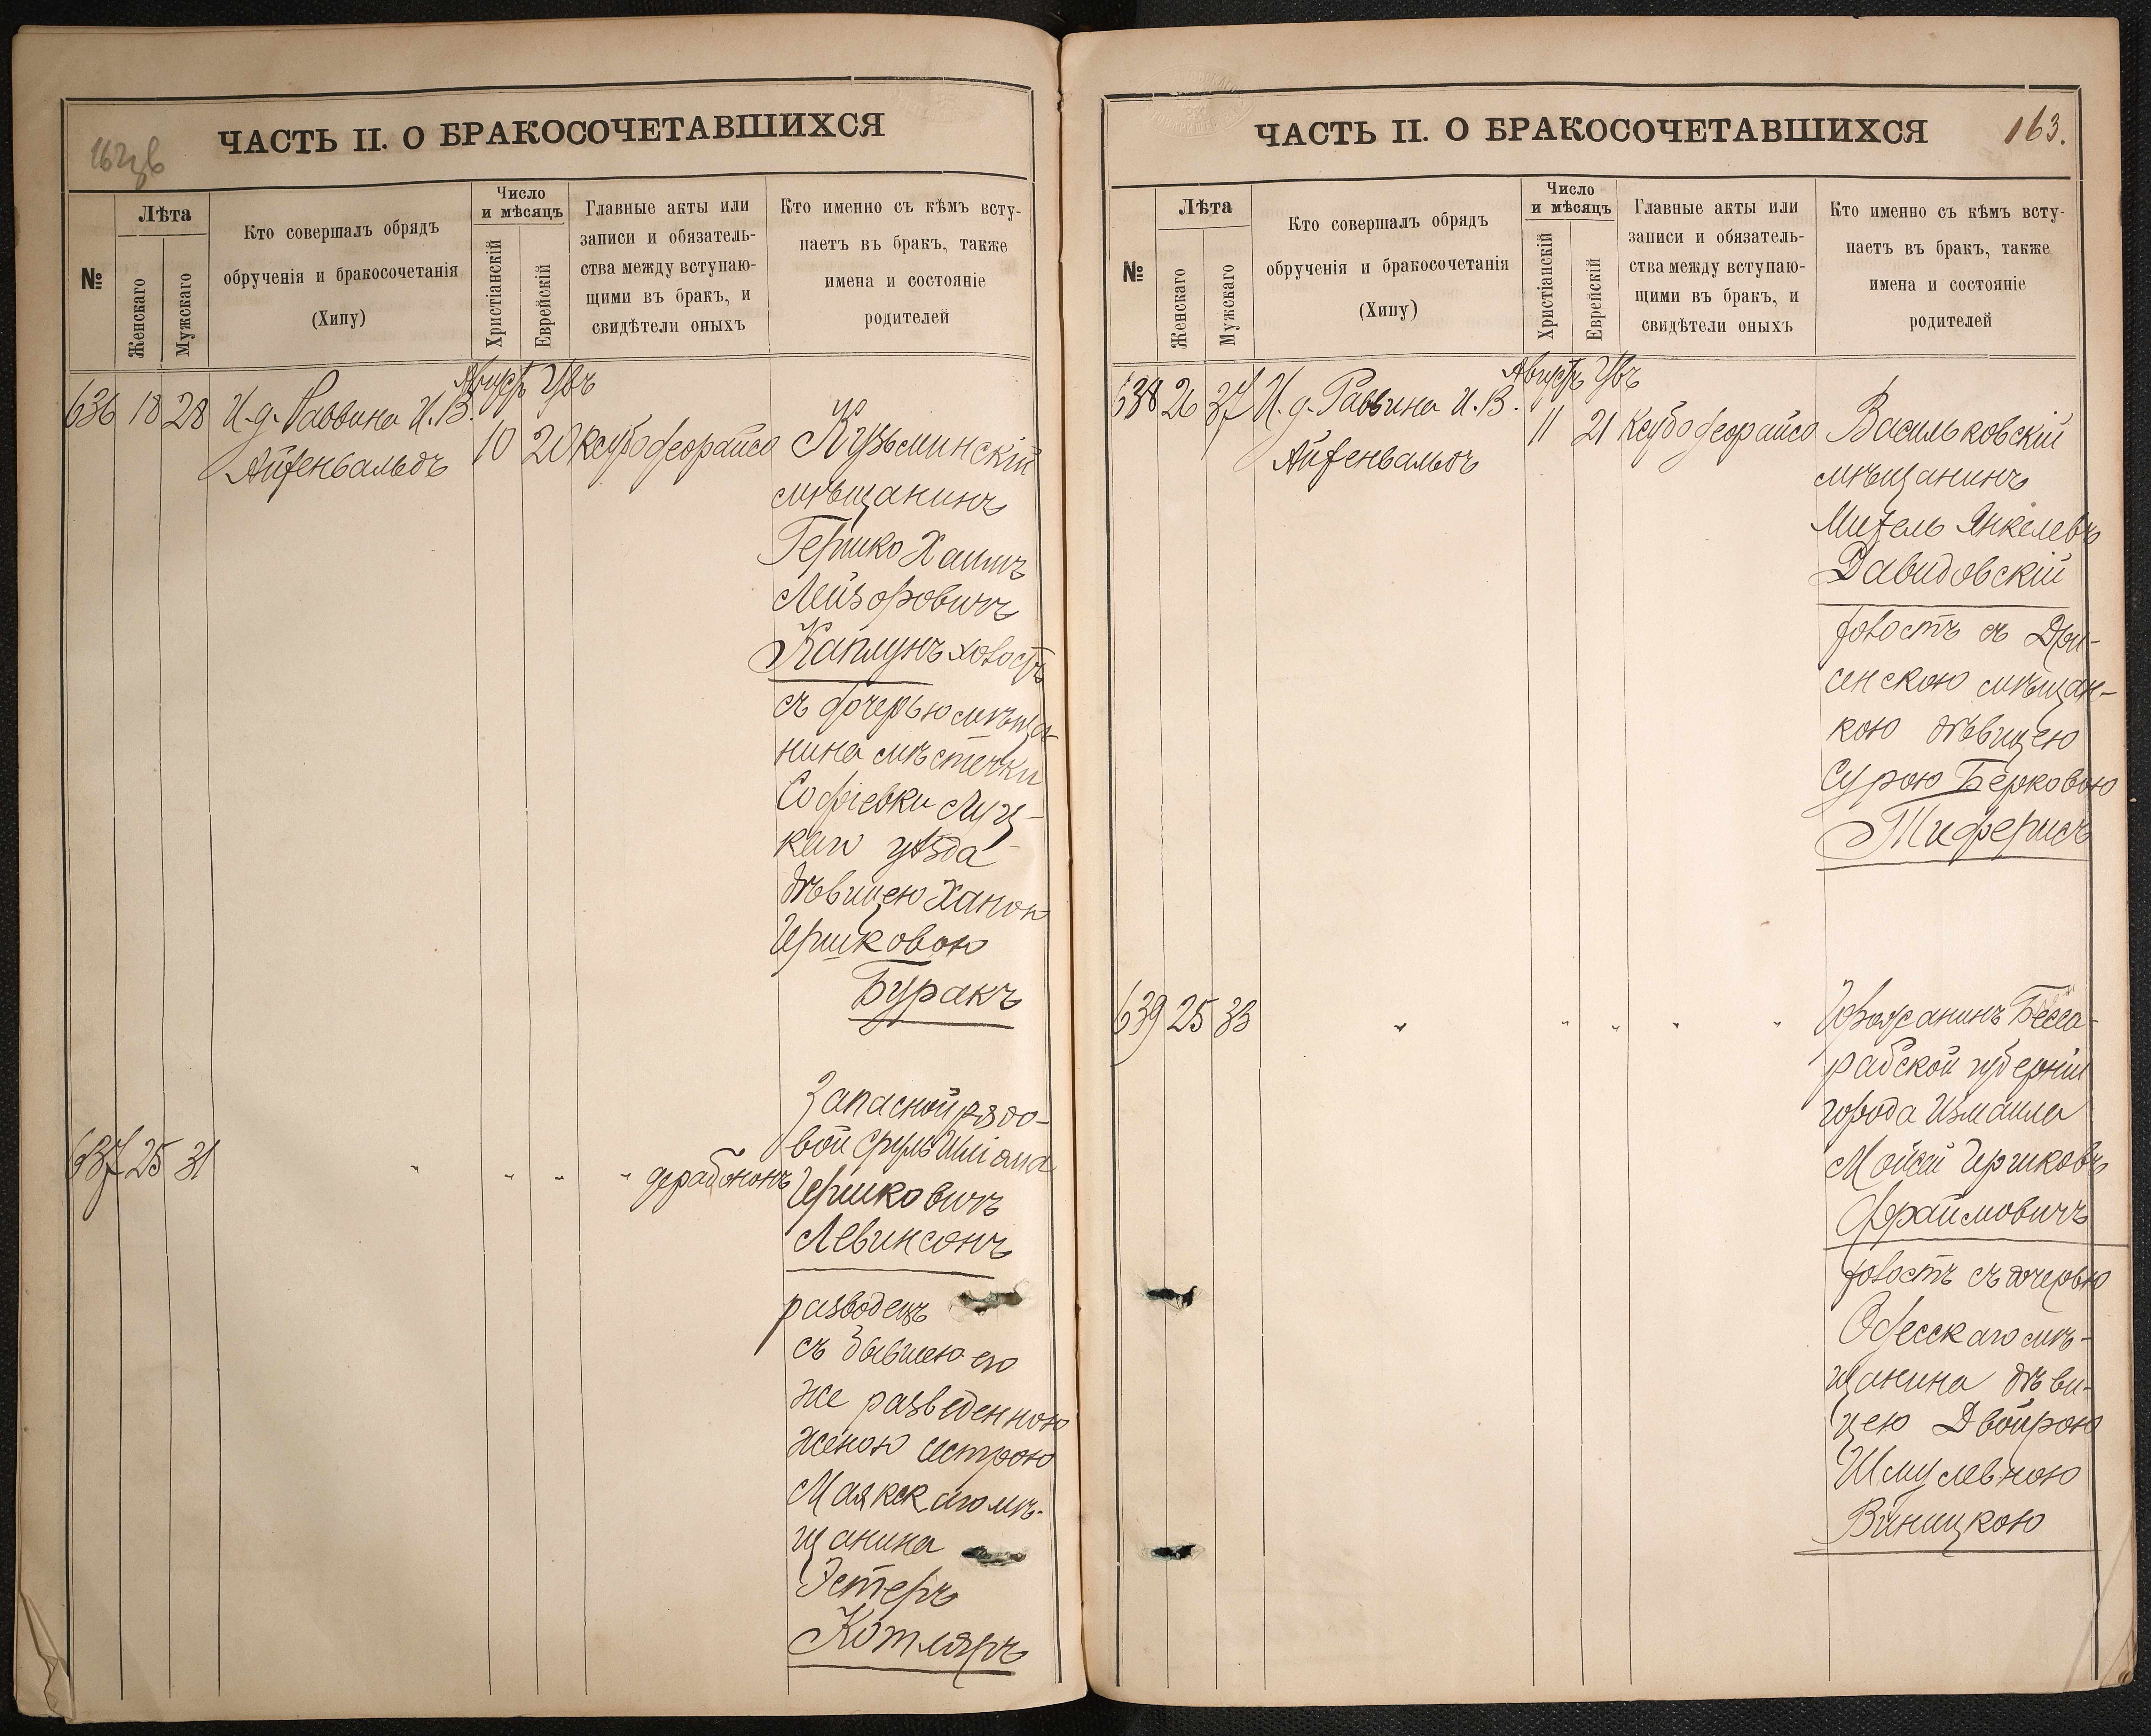 ЧАСТЬ II. О БРАКОСОЧЕТАВШИХСЯ
№
Лѣта
Женскаго
Мужскаго
Кто совершалъ обрядъ
обрученія и бракосочетанія
(Хипу)
Число
и мѣсяцъ
Христіанскій
Еврейскій
Главные акты или
записи и обязатель-
ства между вступаю-
щими въ бракъ, и
свидѣтели оныхъ
Кто именно съ кѣмъ всту-
паетъ въ бракъ, также
имена и состояніе
родителей
636 18 28 И. д. Раввина И. В.
Айзенвальдъ
10 20
Кузьминскій
мѣщанинъ
Гершко Хаимъ
Лейзоровичъ
Каплунъ холостъ
съ дочерью мѣща-
нина мѣстечки
Софіевки Луц-
каго уѣзда
дѣвицею Ханою
Гершковою
Буракъ
637 25 31 " " " "
Запасной рядо-
вой Сруль
Гершковичъ
Левинсонъ
разводецъ
съ бывшею его
же разведенною
женою сестрою
Маякскаго мѣ-
щанина
Эстеръ
Котляръ
ЧАСТЬ II. О БРАКОСОЧЕТАВШИХСЯ
163.
№
Лѣта
Женскаго
Мужскаго
Кто совершалъ обрядъ
обрученія и бракосочетанія
(Хипу)
Число
и мѣсяцъ
Христіанскій
Еврейскій
Главные акты или
записи и обязатель-
ства между вступаю-
щими въ бракъ, и
свидѣтели оныхъ
Кто именно съ кѣмъ всту-
паетъ въ бракъ, также
имена и состояніе
родителей
638 26 37 И. д. Раввина И. В.
Айзенвальдъ
11 21
Васильковскій
мѣщанинъ
Янкелевъ
Давидовскій
холостъ съ Дри-
сенскою мѣщан-
кою дѣвицею
Сурою Берковою
Тиферисъ
639 25 33 " " " " "
Горожанинъ Бесса-
рабской губерніи
города Измаила
Мойсей Гершковъ
Фраймовичъ
холостъ съ дочерью
Одесскаго мѣ-
щанина дѣви-
цею Двойрою
Шмулевною
Виницкою